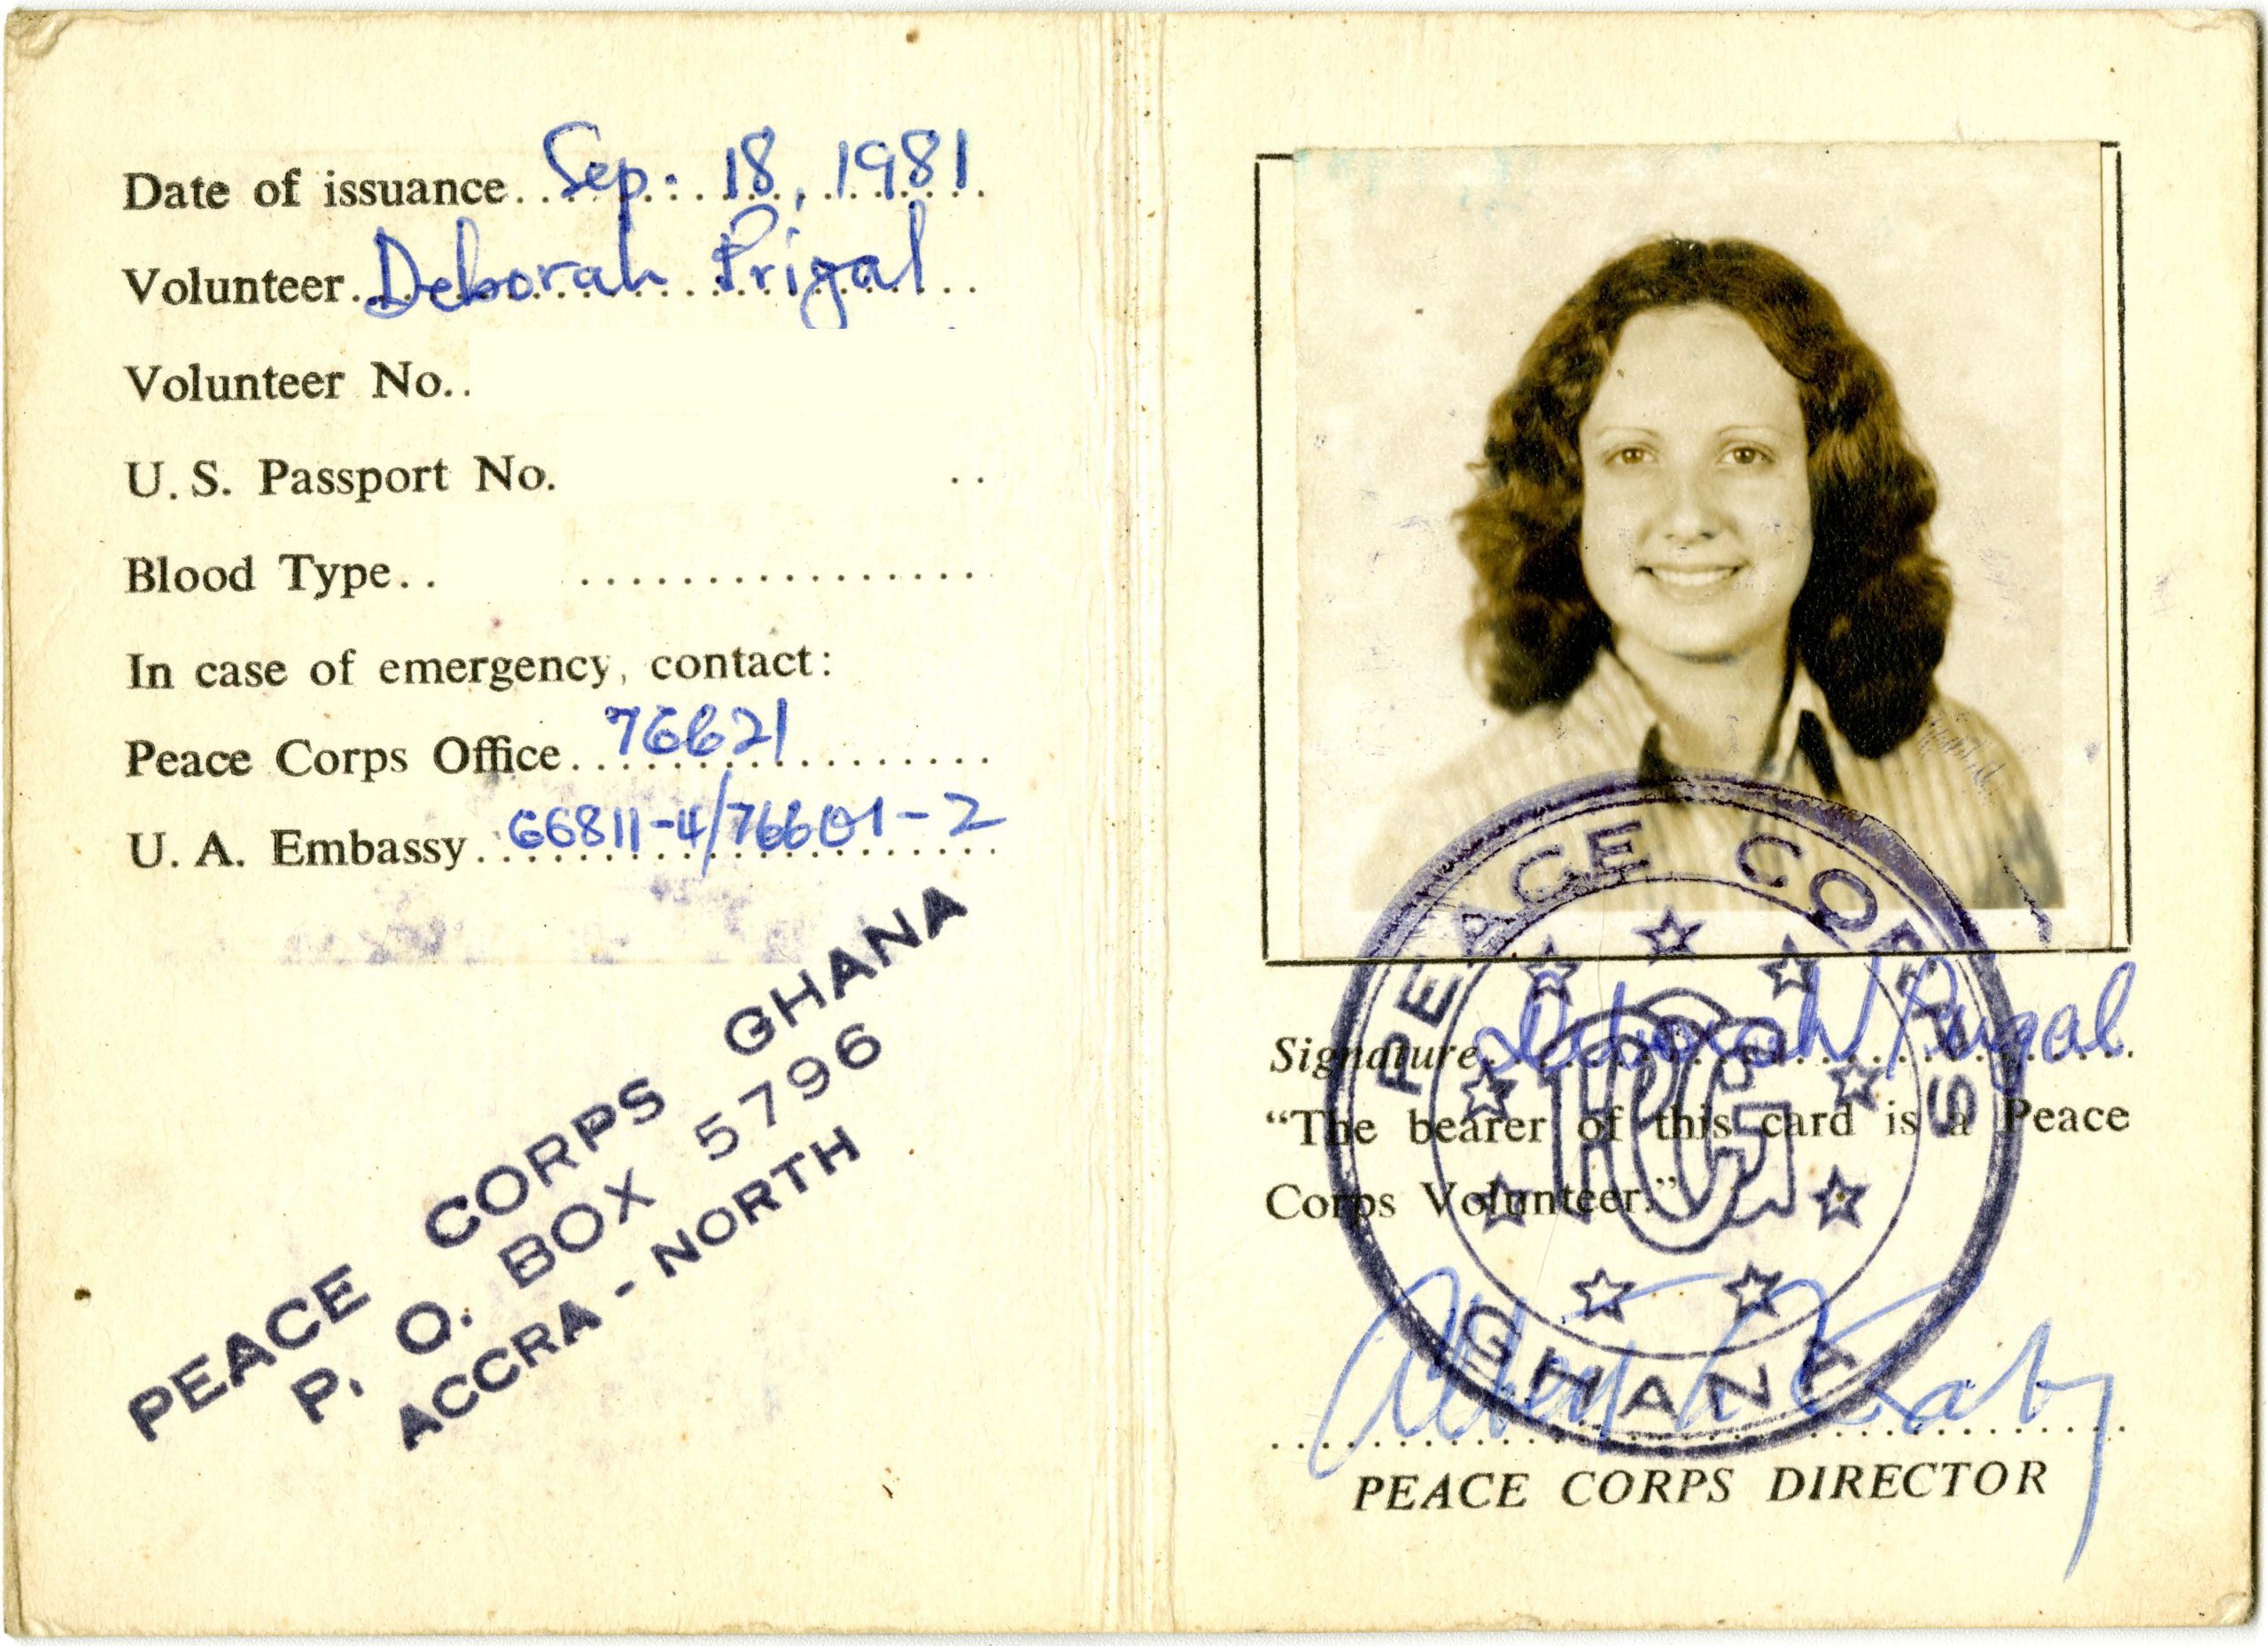 Date of issuance.. Sep. 18, 1981
Volunteer. Deborah Prigal
Volunteer No..
U. S. Passport No.
Blood Type..
In case of emergency, contact:
Peace Corps Office... 76621
U. A. Embassy.. 66811-4/76601-2
PEACE CORPS GHANA
P. O. BOX 5796
ACCRA - NORTH
PEACE CORPS
PCG
GHANA
Signature. Deborah Prigal
“The bearer of this card is a Peace
Corps Volunteer.”
PEACE CORPS DIRECTOR